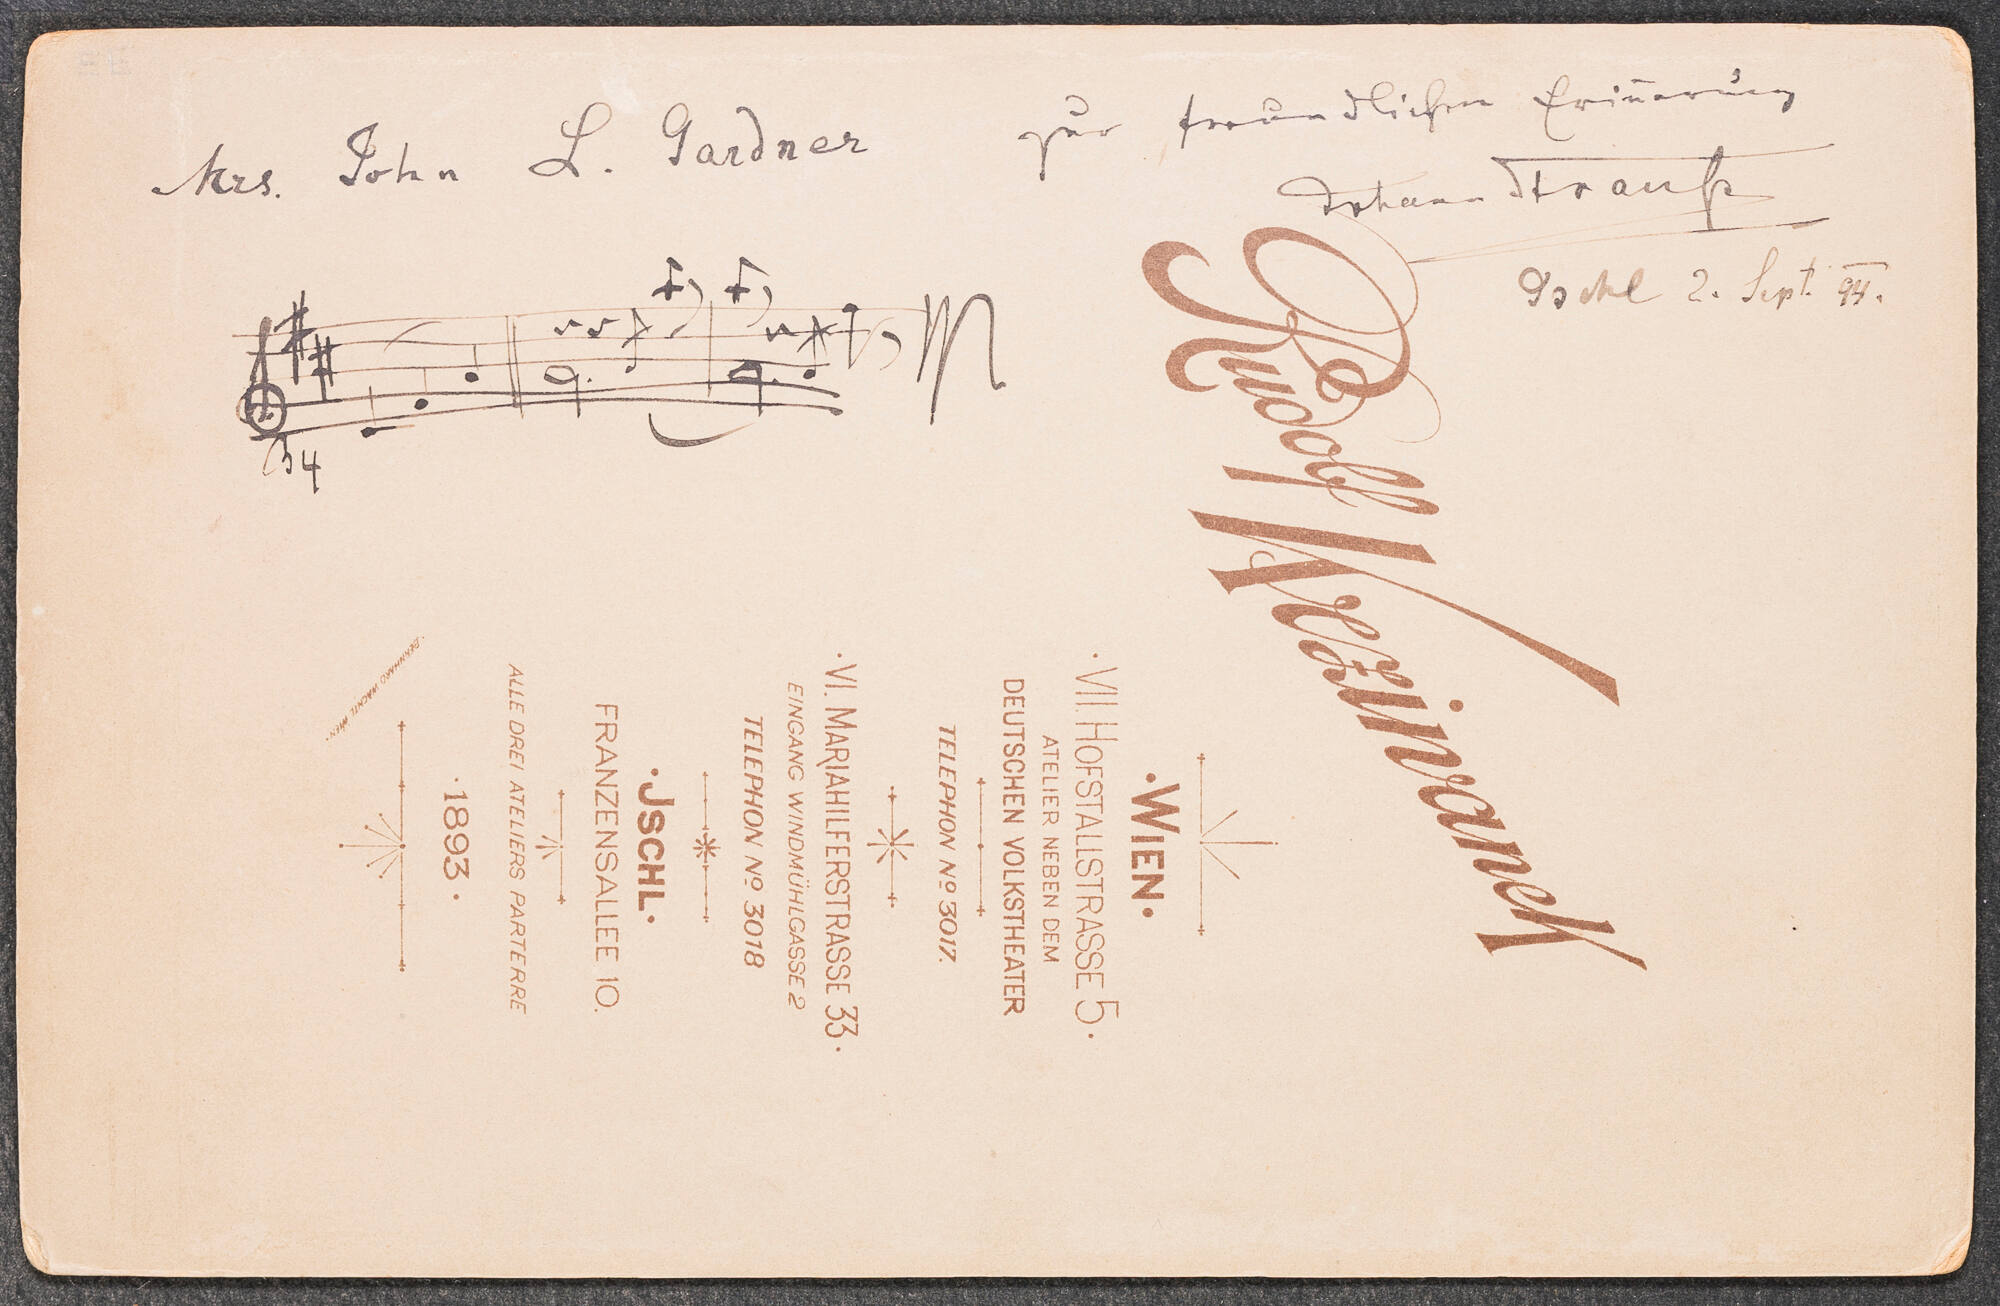 Mrs. John L. Gardner zur freundlichen Erinnerung
Johann Strauß
Ischl 2. Sept. 94.
3/4
Rudolf Krziwanek
· WIEN ·
· VII. HOFSTALLSTRASSE 5 ·
ATELIER NEBEN DEM
DEUTSCHEN VOLKSTHEATER
TELEPHON No 3017.
· VI. MARIAHILFERSTRASSE 33 ·
EINGANG WINDMÜHLGASSE 2
TELEPHON No 3018
· JSCHL ·
FRANZENSALLEE 10.
ALLE DREI ATELIERS PARTERRE
· 1893 ·
BERNHARD WACHTL WIEN.